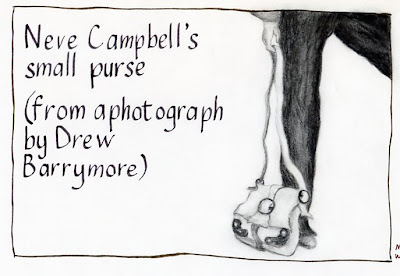 Neve Campbell's
small purse
(from aphotograph
by Drew
Barrymore)